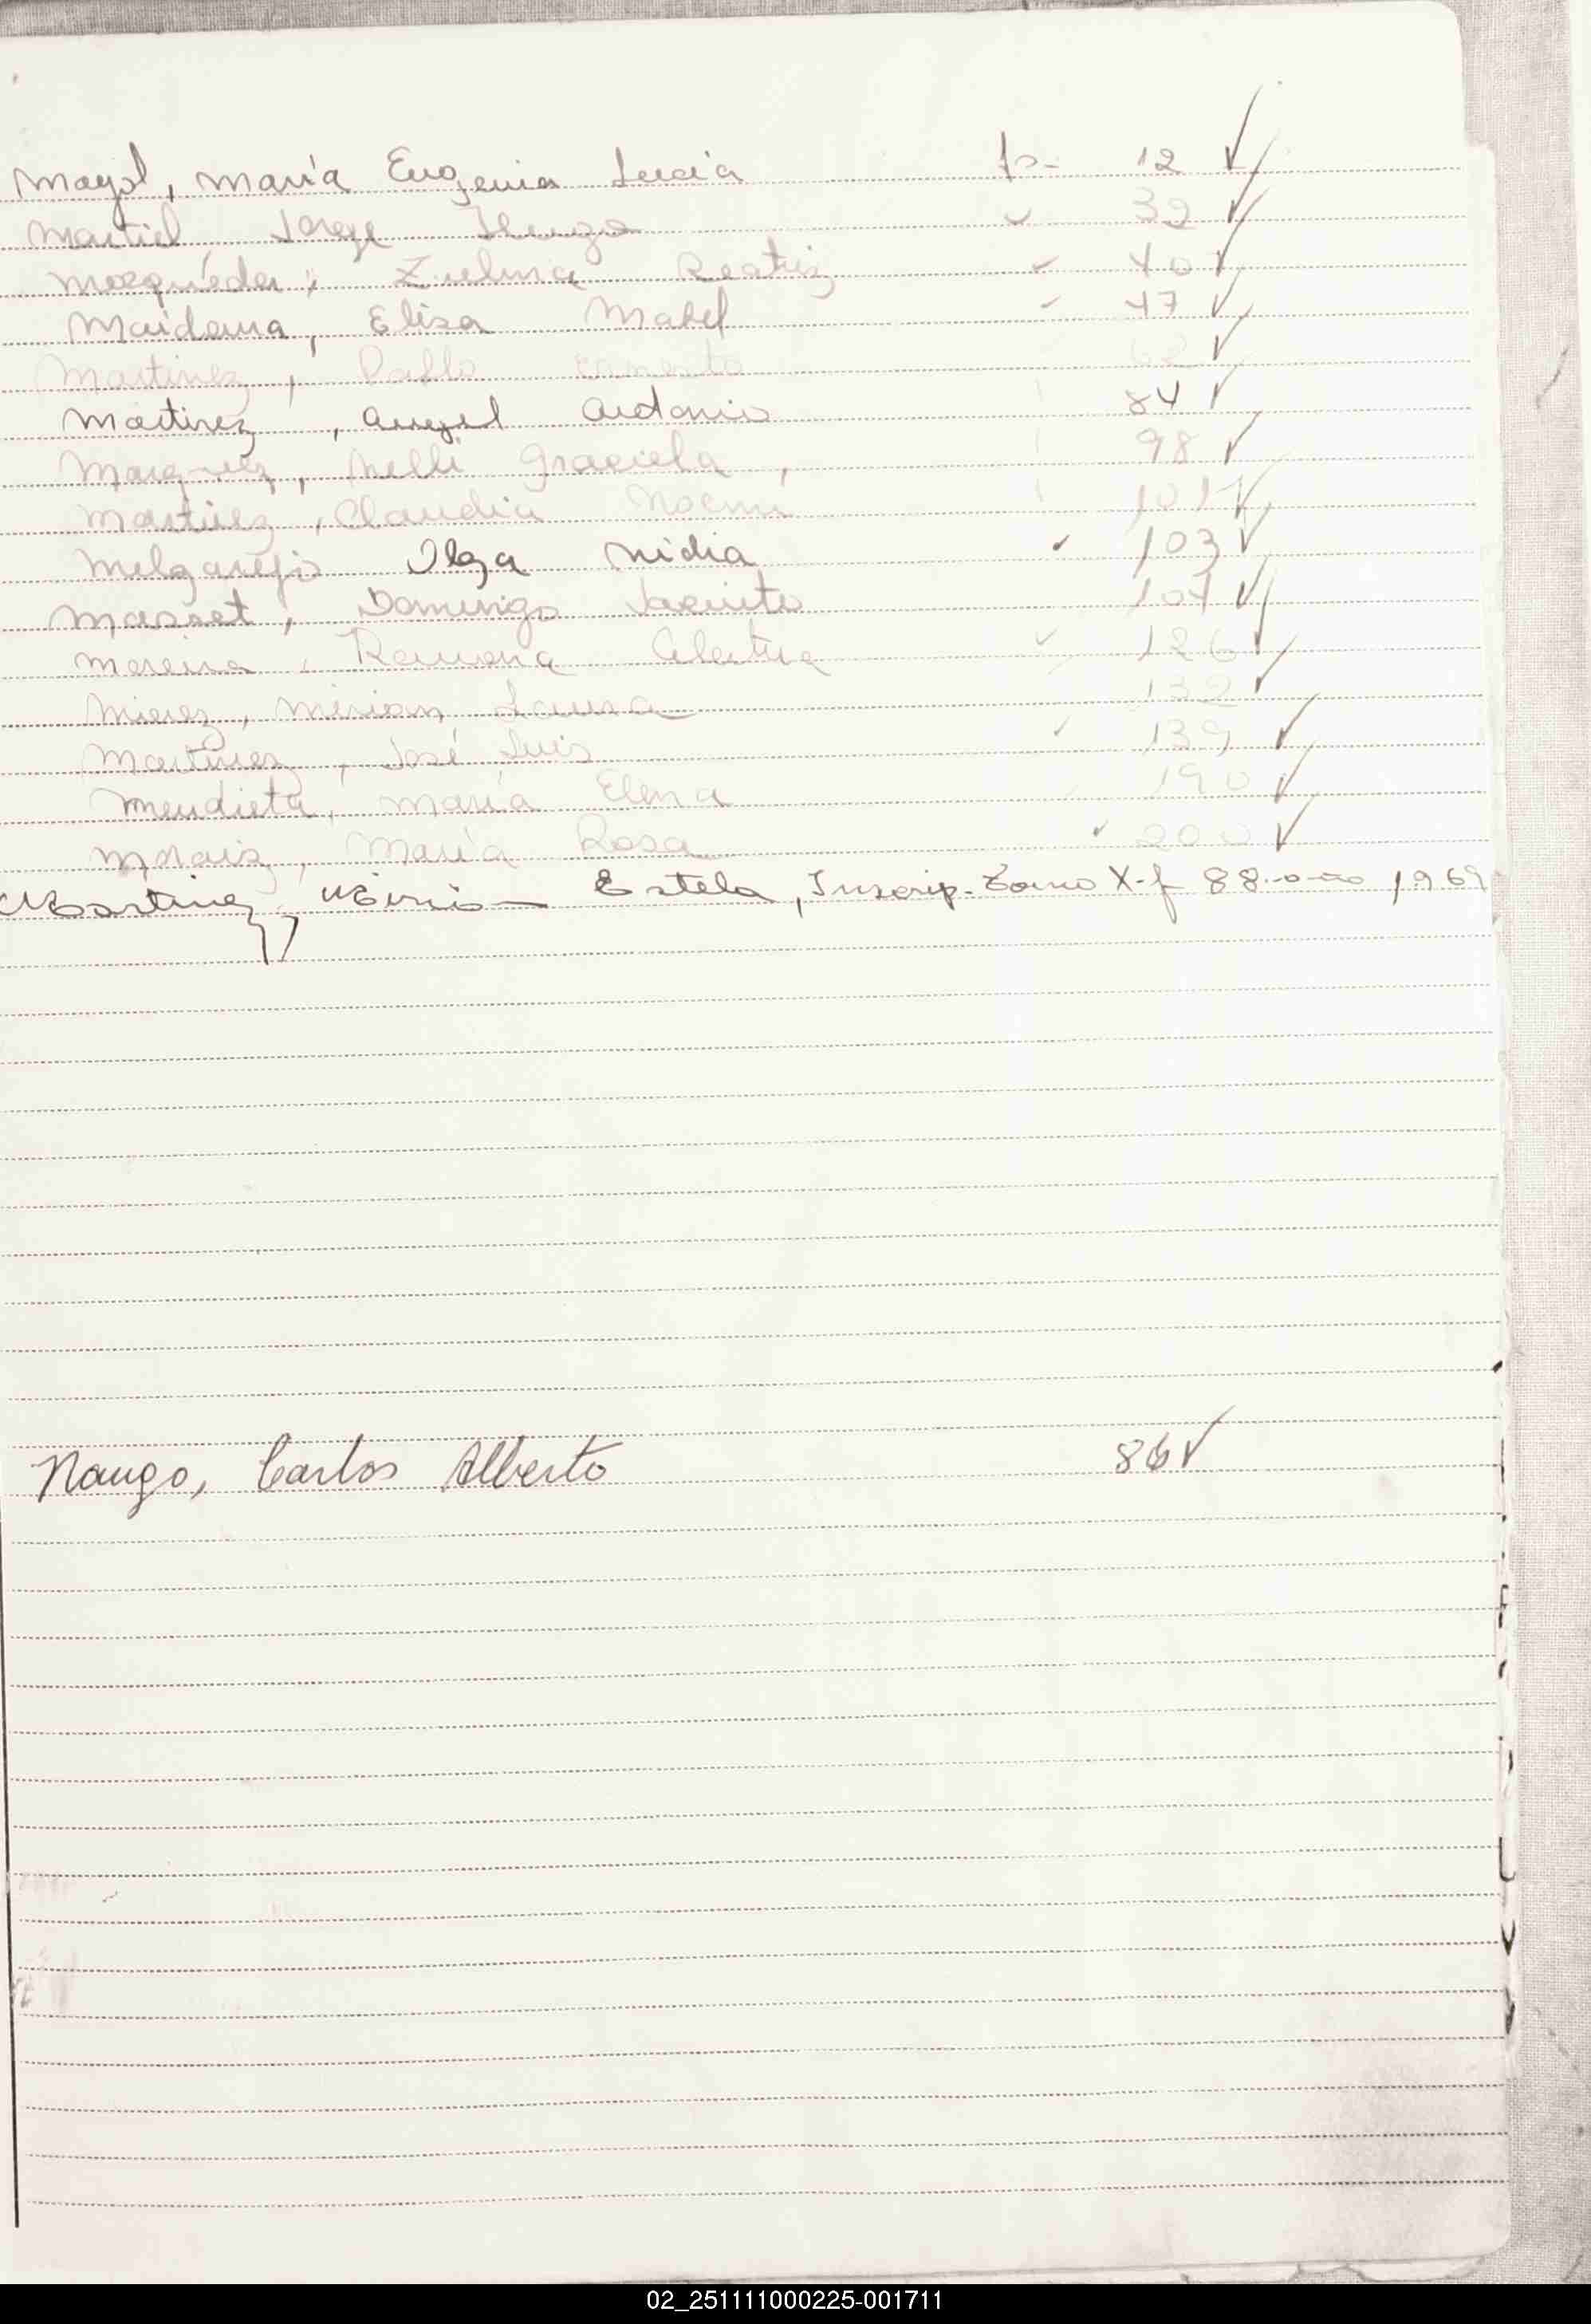 Mayol, María Eugenia Lucía fs- 12 ✓
Martiel Jorge Hugo 39 ✓
Mosqueda, Zulma Beatriz 40 ✓
Maidana, Elisa Mabel 47 ✓
Martinez, Pablo Ernesto 62 ✓
Martinez, Angel Antonio 84 ✓
Marquez, Nelli Graciela, 98 ✓
Martinez, Claudia Noemi 101 ✓
Melgarejo Olga Nidia ✓ 103 ✓
Massat, Domingo Jacinto 104 ✓
Mereira, Ramona 126 ✓
Mierez, Mirian Laura 132 ✓
Martinez, José Luis 139 ✓
Mendieta, María Elena 190 ✓
Moraiz, María Rosa 200 ✓
Martinez, Mirian Estela, Inscrip. Tomo X-f 88 año 1969
Naugo, Carlos Alberto 86 ✓
02_251111000225-001711